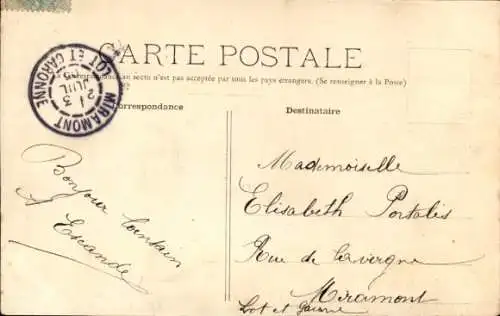 CARTE POSTALE
sectu n'est pas acceptée par tous les pays étrangers. (Se renseigner à la Poste)
MIRAMONT
LOT ET GARONNE
Correspondance
Destinataire
Bonjour lointain
A Escande
Mademoiselle
Elisabeth Portalès
Rue de Lavergne
Miramont
Lot et Garonne